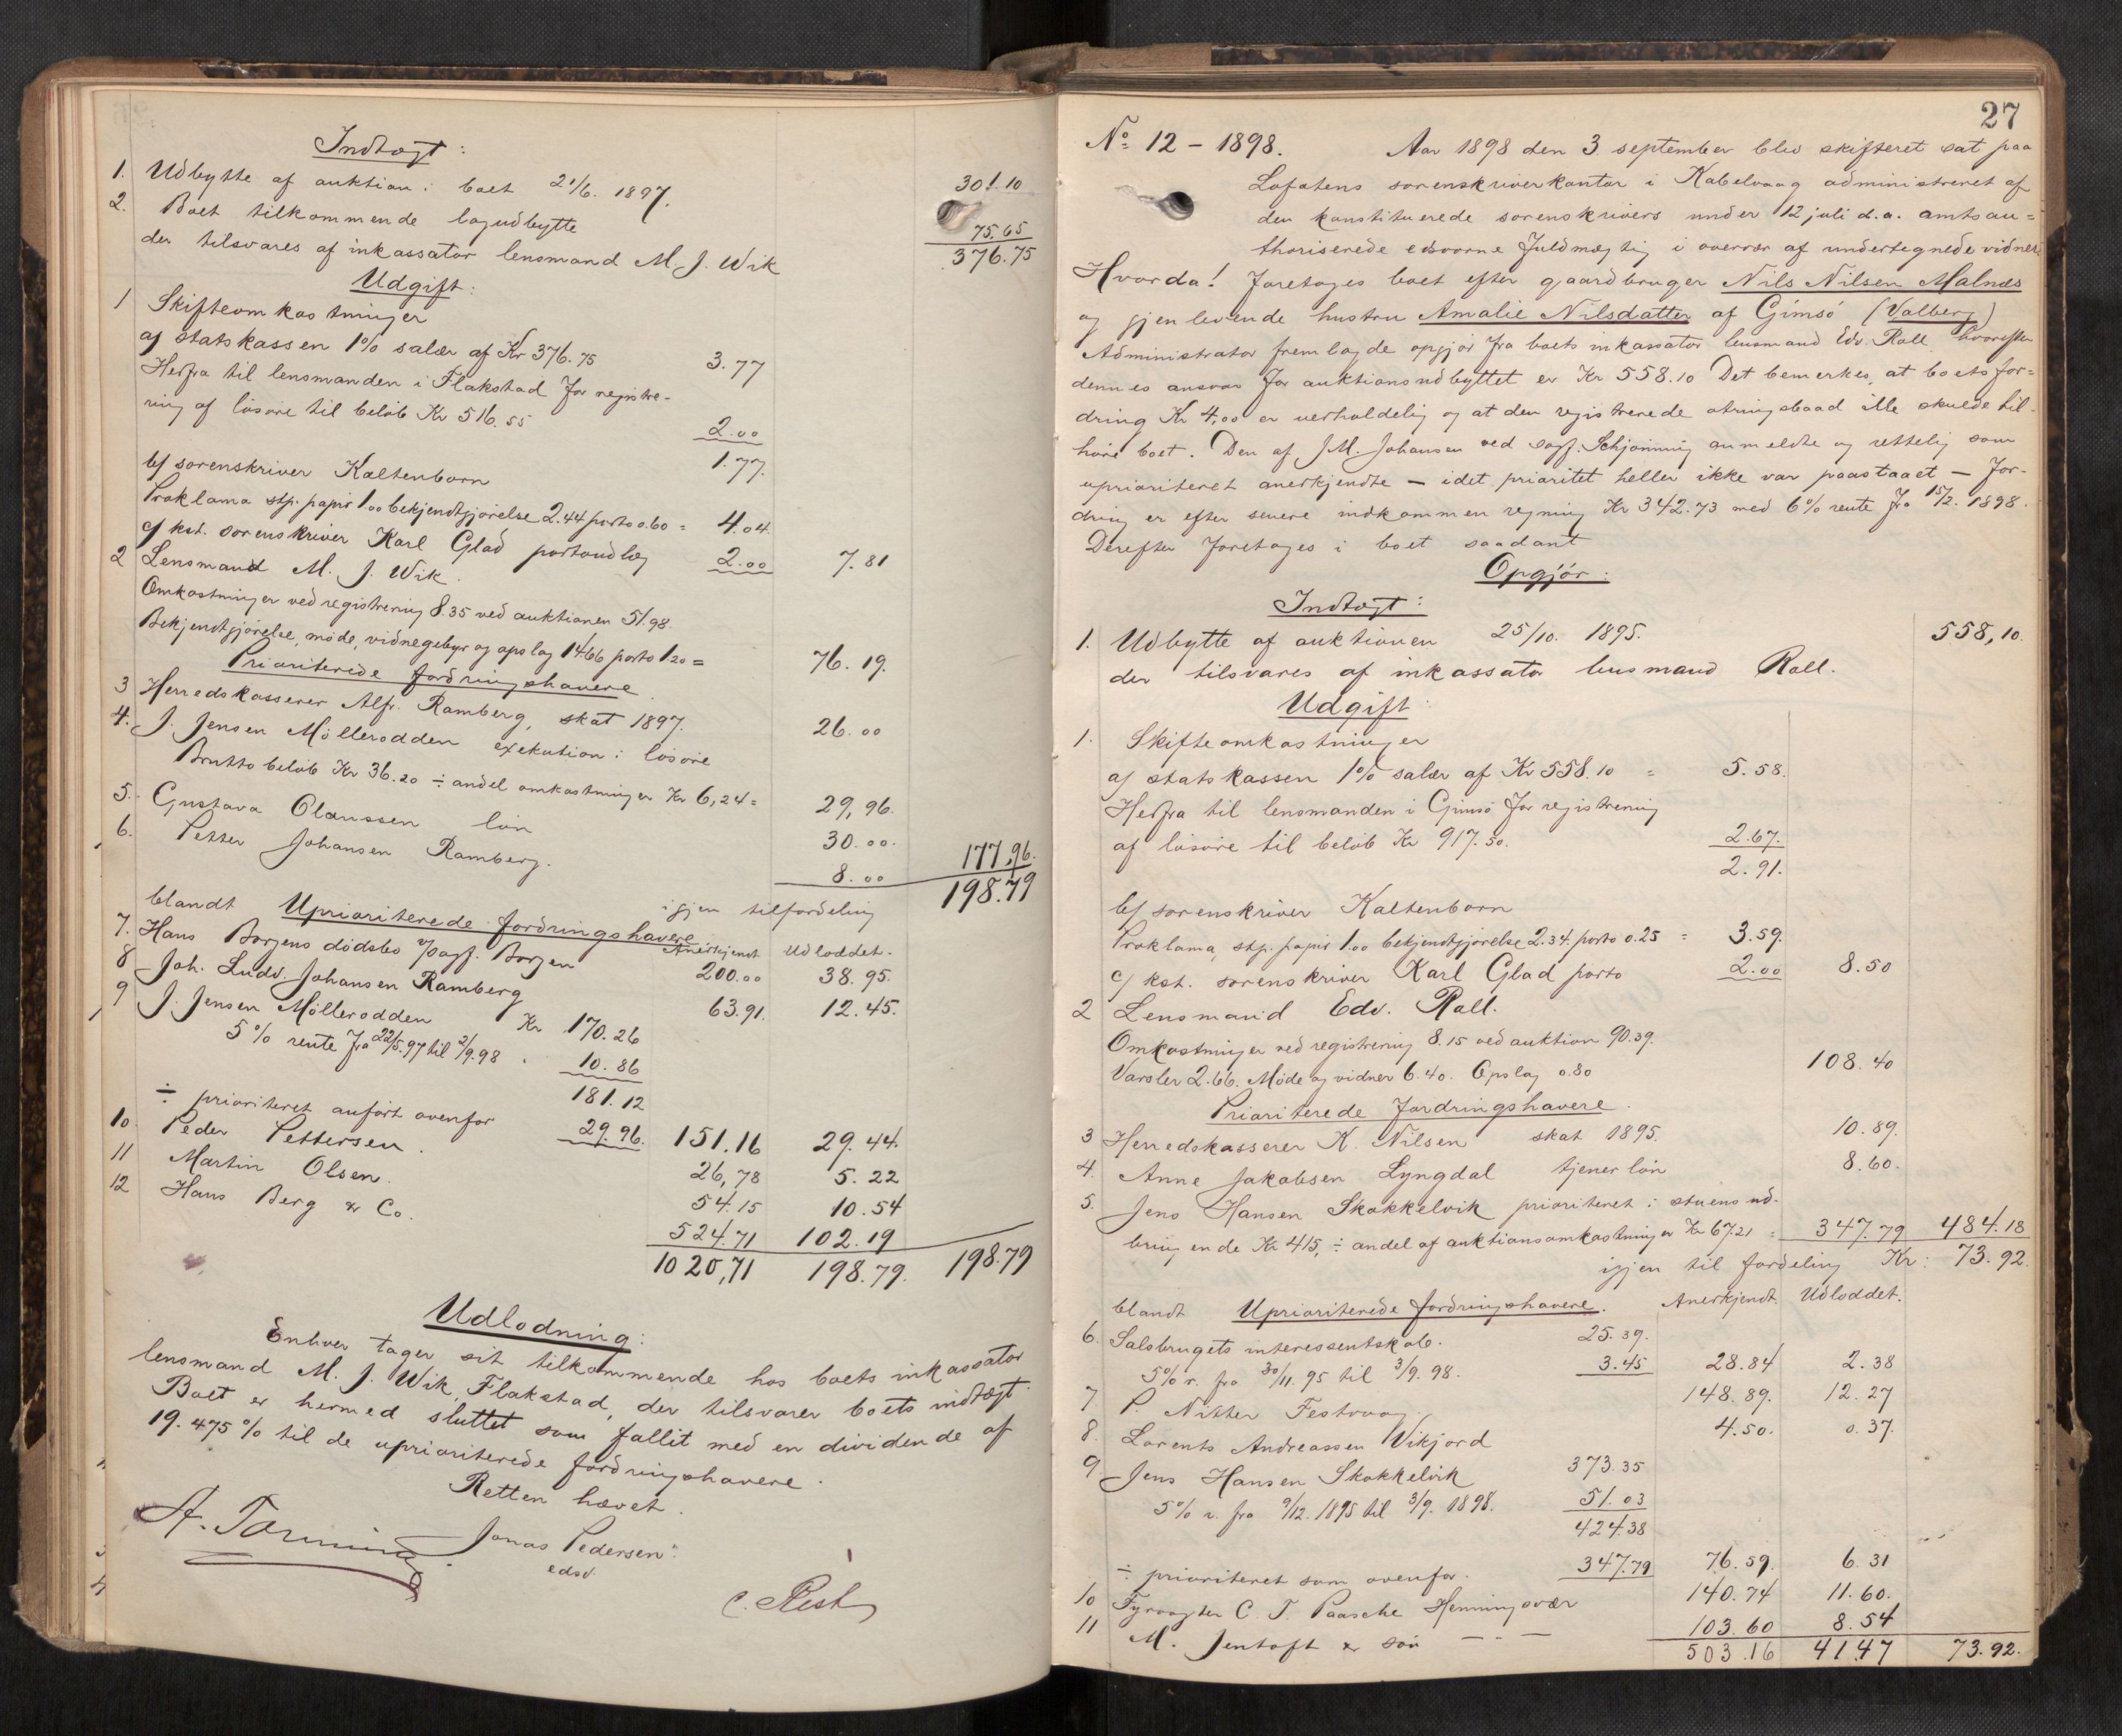 Indtægt:
1. Udbytte af auktion i boet 21/6. 1897. 301.10
2. Boet tilkommende logudbytte 75.65
der tilsvares af inkassator lensmand M. J. Wik 376.75
Udgift:
1 Skifteomkostninger
a/ statskassen 1% salær af Kr 376.75 3.77
Herfra til lensmanden i Flakstad for registre-
ring af løsøre til beløb Kr 516.55 2.00
1.77.
b/ sorenskriver Kaltenborn
Proklama stp. papir 1.00 bekjendtgjørelse 2.44 porto 0.60 = 4.04
c/ kst. sorenskriver Karl Glad portoudlæg 2.00 7.81
2 Lensmand M. J. Wik.
Omkostninger ved registrering 8.35 ved auktionen 51.98.
Bekjendtgjørelse, møde, vidnegebyr og opslag 14.66 porto 1.20 = 76.19.
Prioriterede fordringshavere.
3 Herredskasserer Alfr. Ramberg, skat 1897. 26.00
4. J. Jensen Møllerodden exekution i løsøre
Brutto beløb Kr 36.20 ÷ andel omkostninger Kr 6,24 = 29,96.
5. Gustava Olaussen løn 30.00.
6. Petter Johansen Ramberg. 8.00 177,96.
igjen tilfordeling 198.79
blandt Uprioriterede fordringshavere Anerkjendt Udloddet.
7. Hans Borgens dødsbo v/sagf. Borgen 200.00 38.95.
8 Joh. Ludv. Johansen Ramberg 63.91. 12.45.
9 J. Jensen Møllerodden Kr 170.26
5% rente fra 22/5.97 til 2/9.98 " 10.86
181.12
÷ prioriteret anført ovenfor 29.96. 151.16 29.44.
10 Peder Pettersen. 26,78 5.22
11 Martin Olsen. 54.15 10.54
12 Hans Berg & Co. 524.71 102.19
1020,71 198.79. 198.79
Udlodning:
Enhver tager sit tilkommende hos boets inkassator
lensmand M. J. Wik, Flakstad, der tilsvarer boets indtægt.
Boet er hermed sluttet som fallit med en dividende af
19.475% til de uprioriterede fordringshavere.
Retten hævet.
Jonas Pedersen
edsv.
27
No: 12 – 1898. Aar 1898 den 3 september blev skifteret sat paa
Lofotens sorenskriverkontor i Kabelvaag administreret af
den konstituerede sorenskrivers under 12 juli d.a. amtsau=
thoriserede edsvorne fuldmægtig i overvær af undertegnede vidner.
Hvorda! Foretoges boet efter gaardbruger Nils Nilsen Malnes
og gjenlevende hustru Amalie Nilsdatter af Gimsø (Valberg)
Administrator fremlagde opgjør fra boets inkassator lensmand Edv. Rall. hvorefter
dennes ansvar for auktionsudbyttet er Kr 558.10 Det bemerkes, at boets for=
dring Kr 4,00 er uerholdelig og at den registrerede otringsbaad ikke skulde til-
høre boet. Den af J. M. Johansen ved sagf. Schjønning anmeldte og rettelig som
uprioriteret anerkjendte – idet prioritet heller ikke var paastaaet – for-
dring er efter senere indkommen regning Kr 342.73 med 6% rente fra 15/2. 1898.
Derefter foretoges i boet saadant
Opgjør:
Indtægt:
1. Udbytte af auktionen 25/10. 1895. 558,10.
der tilsvares af inkassator lensmand Rall.
Udgift:
1. Skifteomkostninger
a/ statskassen 1% salær af Kr 558.10 = 5.58.
Herfra til lensmanden i Gimsø for registrering
af løsøre til beløb Kr 917.50. 2.67.
2.91.
b/ sorenskriver Kaltenborn
Proklama, stp. papir 1.00 bekjendtgjørelse 2.34. porto 0.25 = 3.59.
c/ kst. sorenskriver Karl Glad porto 2.00 8.50
2 Lensmand Edv. Rall.
Omkostninger ved registrering 8.15 ved auktion 90.39.
Varsler 2.66. Møde og vidner 6.40. Opslag 0.80 108.40
Prioriterede fordringshavere.
3 Herredskasserer K. Nilsen skat 1895. 10.89.
4. Anne Jakobsen Lyngdal tjenerløn 8.60.
5. Jens Hansen Skokkelvik prioriteret i stuens ud-
bringende Kr 415, ÷ andel af auktionsomkostninger Kr 67.21 = 347.79 484.18
igjen til fordeling Kr: 73.92.
blandt Uprioriterede fordringshavere. Anerkjendt. Udloddet.
6. Salsbrugets interessentskab. 25.39.
5% r. fra 30/11.95 til 3/9.98. 3.45 28.84 2.38
7 P. Nitter Festvaag 148.89. 12.27
8. Lorents Andreassen Vikjord 4.50. 0.37.
9 Jens Hansen Skokkelvik 373.35
5% r. fra 9/12. 1895 til 3/9. 1898. 51.03
424.38
÷ prioriteret som ovenfor. 347.79 76.59. 6.31
10 Fyrvogter C. T. Paasche Henningsvær 140.74 11.60.
11 M. Jentoft & søn – " – 103.60 8.54
503.16 41.47 73.92.